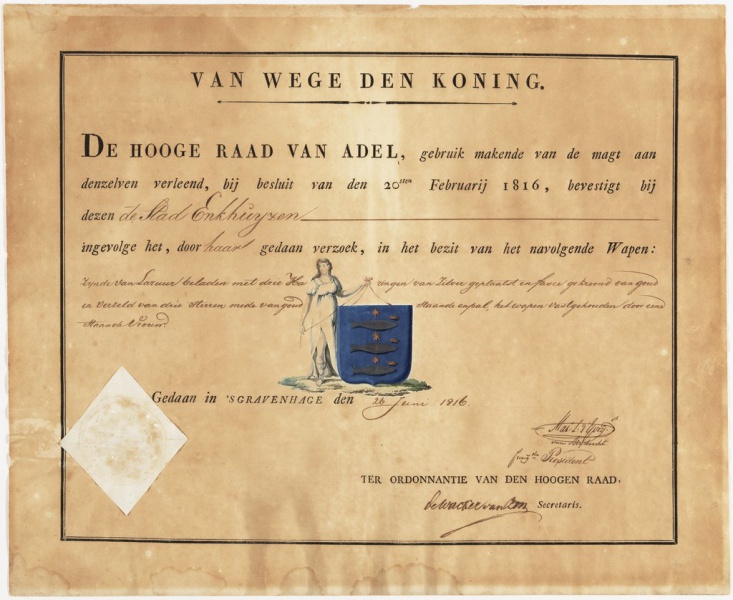 VAN WEGE DEN KONING.
DE HOOGE RAAD VAN ADEL, gebruik makende van de magt aan
denzelven verleend, bij besluit van den 20sten Februarij 1816, bevestigt bij
dezen de Stad Enkhuyzen
ingevolge het, door haar gedaan verzoek, in het bezit van het navolgende Wapen:
Zynde van Lazuur beladen met drie Haringen van Zilver geplaatst en fasce gekroond van goud
en verzeld van drie Sterren mede van goud staande en pal, het wapen vastgehouden door eene
staande Vrouw.
Gedaan in 'SGRAVENHAGE den 26 Juni 1816.
President
TER ORDONNANTIE VAN DEN HOOGEN RAAD,
Secretaris.